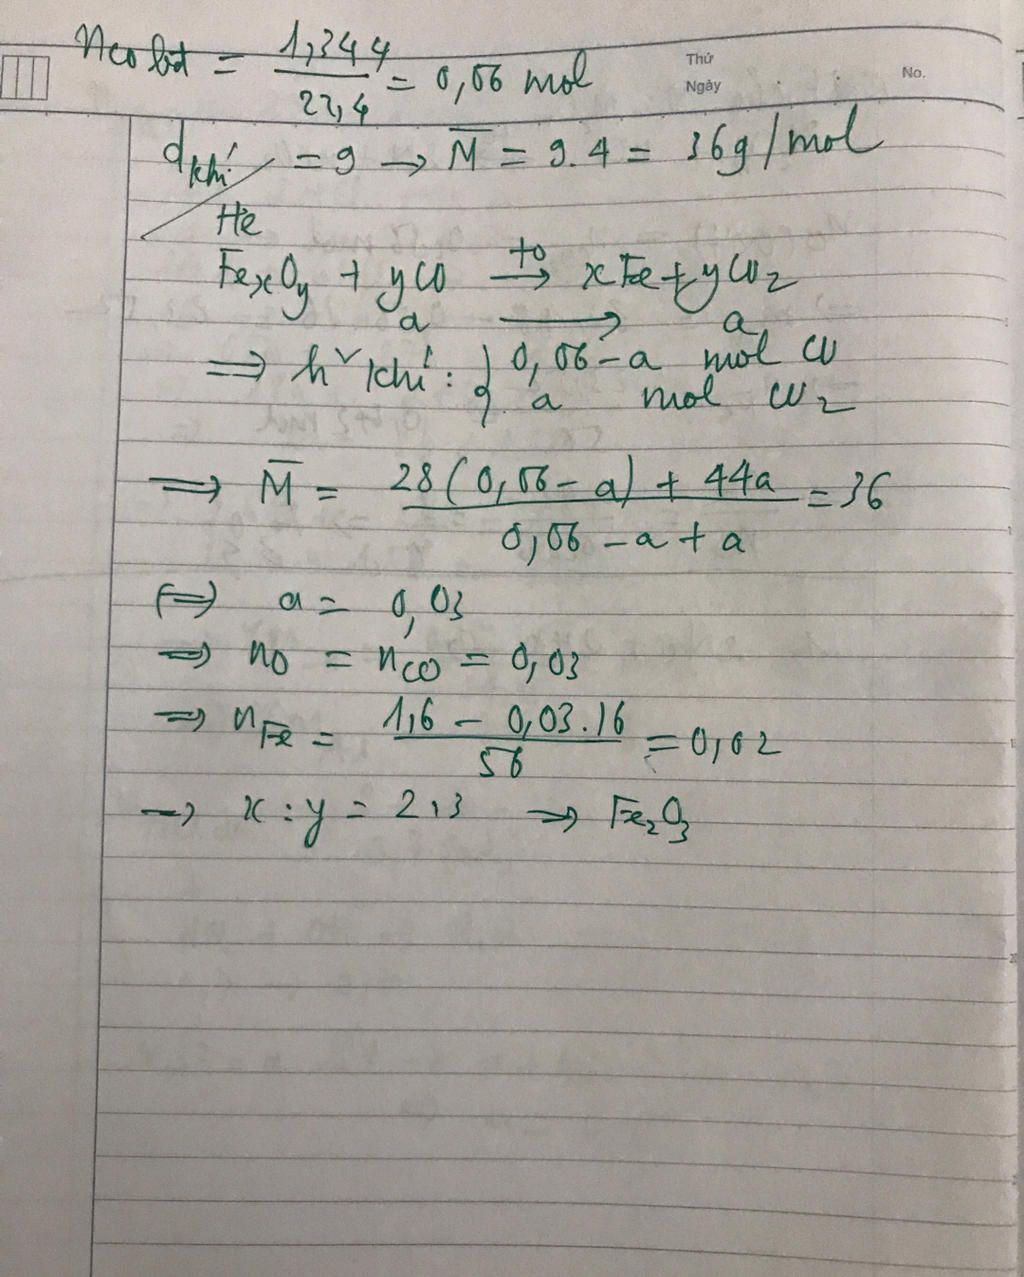 nCO bđ = 1,344 / 22,4 = 0,06 mol
Thứ
Ngày
No.
d khí / He = 9 → M̅ = 9.4 = 36g/mol
FexOy + yCO t° → xFe + yCO2
a → a
⇒ h² khí : { 0,06 - a mol CO
a mol CO2
⇒ M̅ = 28(0,06 - a) + 44a / 0,06 - a + a = 36
⇔ a = 0,03
⇒ nO = nCO = 0,03
⇒ nFe = 1,6 - 0,03.16 / 56 = 0,02
→ x : y = 2:3 ⇒ Fe2O3